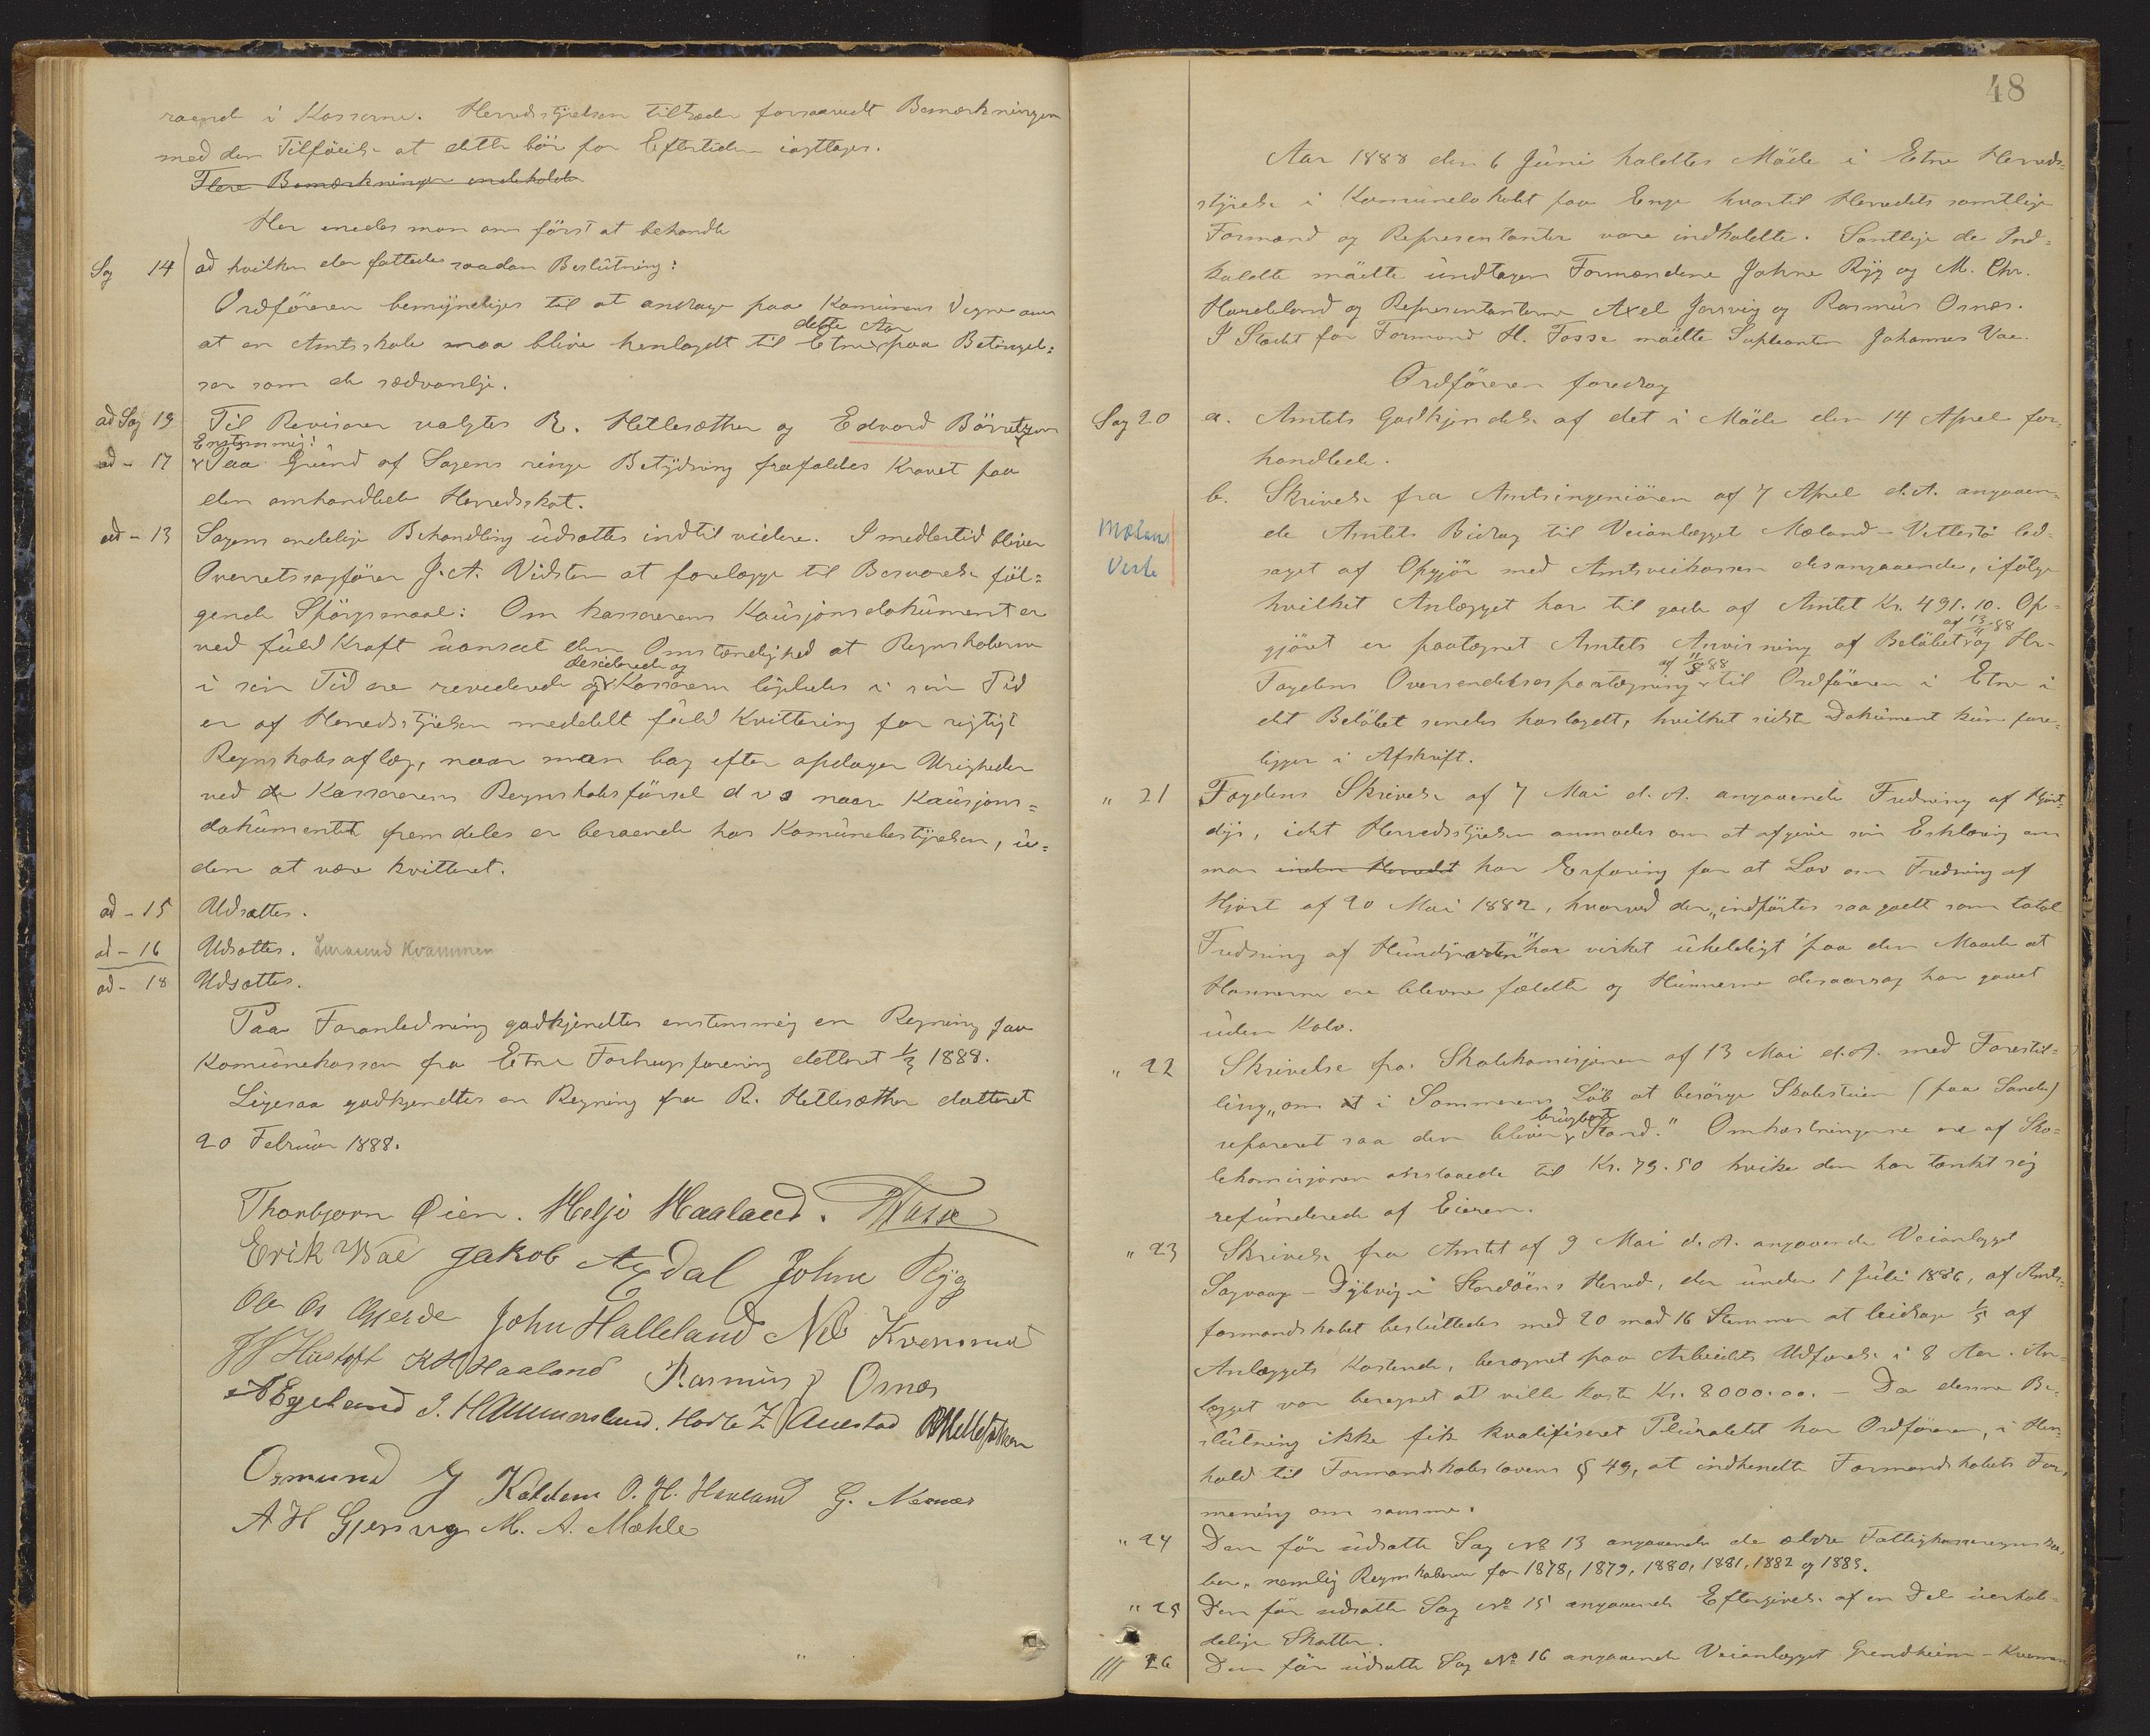 raend i Kasserne. Herredsstyrelsen tiltræder forsaavidt Bemærkningen
med den Tilföielse at dette bör for Eftertiden iagttages.
Flere Bemærkninger indeholdt
Her enedes man om först at behandle
Sag 14 ad hvilken der fattedes saadan Beslutning:
Ordföreren bemyndiges til at andrage paa Komunens Vegne om
dette Aar
at en Amtsskole maa blive henlagdt til Etne paa Betingel=
ser som de sædvanlige.
ad Sag 19 Til Revisorer valgtes R. Hetlesæther og Edvard Börretzen
Enstemmig:
ad - 17 Paa Grund af Sagens ringe Betydning frafaldes Kravet paa
den omhandlede Herredsskat.
ad - 13 Sagens endelige Behandling udsattes indtil videre. Imedlertid bliver
Overretssagförer J. A. Vidsten at forelægge til Besvarelse föl=
gende Spörgsmaal: Om kassererens Kausjonsdokument er
ved fuld Kraft uanseet den Omstændighed at Regnskaberne
desiderede og
i sin Tid ere reviderede og Kassereren ligeledes i sin Tid
er af Herredsstyrelsen meddelt fuld Kvittering for rigtigt
Regnskabsaflæg, naar man bag efter opdager Urigheder
ved de Kassererens Regnskabsförsel d v s naar Kausjons=
dokumentet fremdeles er beroende hos Komunebestyrelsen, u=
den at være kvitteret.
ad - 15 Udsattes.
ad - 16 Udsattes. Kvammen
ad - 18 Udsattes.
Paa Foranledning godkjendtes enstemmig en Regning paa
Komunekassen fra Etne Forbrugsforening datteret 1/3 1888.
Ligesaa godkjendtes en Regning fra R. Hetlesæther datteret
20 Februar 1888.
Thorbjorn Øien. Helje Haaland.
Erik Wae Jakob Axdal Johne Ryg
Ole Gjerde John Halleland Nils Kvammen
Hustoft K H Haaland Rasmus J Osnes
A Egeland J. Hammerslund. Auestad R Hetlesæther
Osmund J Kaldem O. H. Hauland G. Nernes
A H Gjersvig M. A. Mæhle
48
Aar 1888 den 6 Juni holdtes Möde i Etne Herreds=
styrelse i Komunelokalet paa Enge hvortil Herredets samtlige
Formænd og Representanter vare indkaldte. Samtlige de Ind=
kaldte mödte undtagen Formændene Johne Ryg og M. Chr.
Hardeland og Representanterne Axel Jersvig og Rasmus Osnes.
I Stedet for Formand H. Fosse mödte Supleanten Johannes Vae.
Ordföreren foredrog
Sag 20 a. Amtets Godkjendelse af det i Möde den 14 April for=
handlede.
b. Skrivelse fra Amtsingeniören af 7 April d. A. angaaen=
Mæland
de Amtets Bidrag til Veianlægget Mæland - Vetlestö led=
Vestb
saget af Opgjör med Amtsveikassen desangaaende, ifölge
hvilket Anlægget har til gode af Amtet Kr. 491.10. Op=
af 13/4-88
gjöret er paategnet Amtets Anvisning af Belöbet og Hr.
af 11/5 88
Fogdens Oversendelsespaategning til Ordföreren i Etne i
det Belöbet sendes hoslagdt, hvilket sidste Dokument kun fore=
ligger i Afskrift.
" 21 Fogdens Skrivelse af 7 Mai d. A. angaaende Fredning af Hjort=
dyr, idet Herredsstyrelsen anmodes om at afgive sin Erklæring om
man inden Herredet har Erfaring for at Lov om Fredning af
Hjort af 20 Mai 1882, hvorved der „indförtes saa godt som total
Fredning af Hundyrarten" har virket uheldigt paa den Maade at
Hannerne ere blevne fældte og Hunnerne desaarsag har gaaet
uden Kalv.
" 22 Skrivelse fra Skolekomisjonen af 13 Mai d. A. med Forestil=
ling „om at i Sommerens Löb at besörge Skolestuen (paa Sande)
brugbar
repareret saa den bliver i Stand." Omkostningerne ere af Sko=
lekomisjonen anslaaede til Kr. 79.50 hvilke den har tænkt sig
refunderede af Eieren.
" 23 Skrivelse fra Amtet af 9 Mai d. A. angaaende Veianlægget
Sagvaag - Dybvig i Stordöens Herred, der under 1 Juli 1886, af Amts=
formandskabet besluttedes med 20 mod 16 Stemmer at bidrage 1/5 af
Anlæggets Kostende, beregnet paa Arbeidets Udförelse i 8 Aar. An=
lægget var beregnet at ville koste Kr. 8000.00. - Da denne Be=
slutning ikke fik kvalifiseret Pluralitet har Ordföreren, i Hen=
hold til Formandskabslovens § 49, at indhendte Formandskabets For=
mening om samme.
" 24 Den för udsatte Sag No 13 angaaende de ældre Fattigkasseregnska=
ber, nemlig Regnskaberne for 1878, 1879, 1880, 1881, 1882 og 1883.
" 25 Den för udsatte Sag No 15 angaaende Eftergivelse af en Del uerhol=
delige Skatter.
26 Den för udsatte Sag No 16 angaaende Veianlægget Grindheim - Kvammen